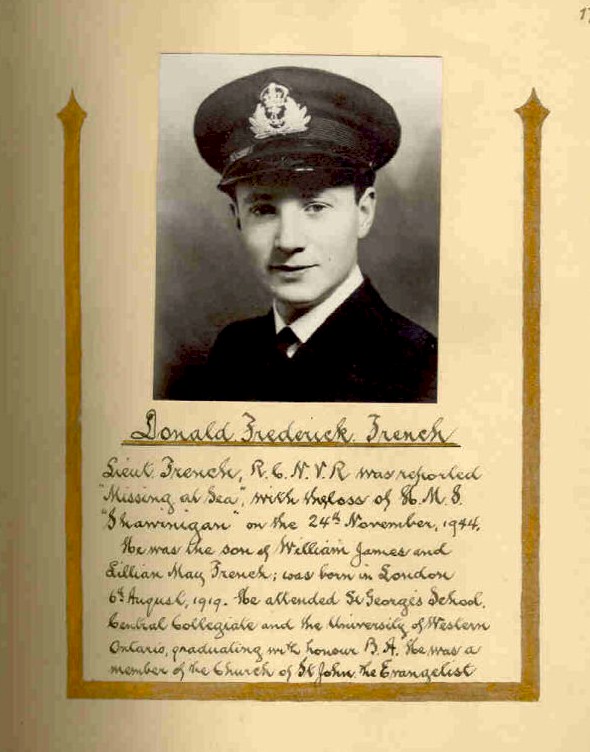 17
Donald Frederick French
Lieut. French, R.C.N.V.R was reported
"Missing at Sea", with the loss of H.M.S.
"Shawinigan" on the 24th November, 1944.
He was the son of William James and
Lillian May French; was born in London
6th August, 1919. He attended St George's School,
Central Collegiate and the University of Western
Ontario, graduating with honour B.A. He was a
member of the Church of St John the Evangelist